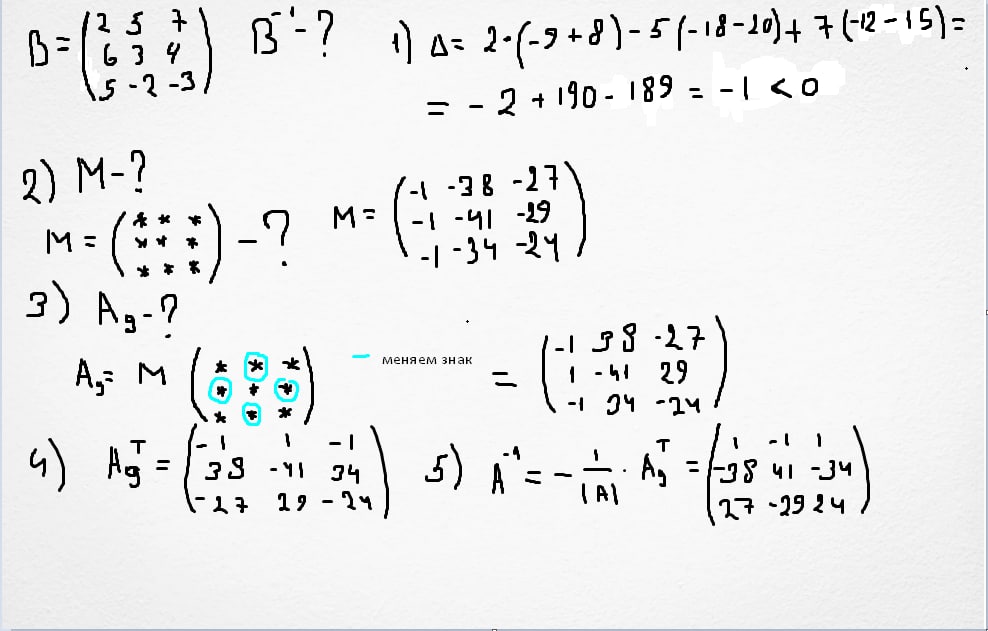 B = (2 5 7 6 3 4 5 -2 -3) B⁻¹ - ? 1) Δ = 2·(-9+8) - 5(-18-20) + 7(-12-15) =
= -2 + 190 - 189 = -1 < 0
2) M - ?
M = (* * * * * * * * *) - ? M = (-1 -38 -27 -1 -41 -29 -1 -34 -24)
3) Ag - ?
Ag = M (* * * * * * * * *) — меняем знак = (-1 38 -27 1 -41 29 -1 34 -24)
4) Agᵀ = (-1 1 -1 38 -41 34 -27 29 -24) 5) A⁻¹ = - 1/|A| · Agᵀ = (1 -1 1 -38 41 -34 27 -29 24)